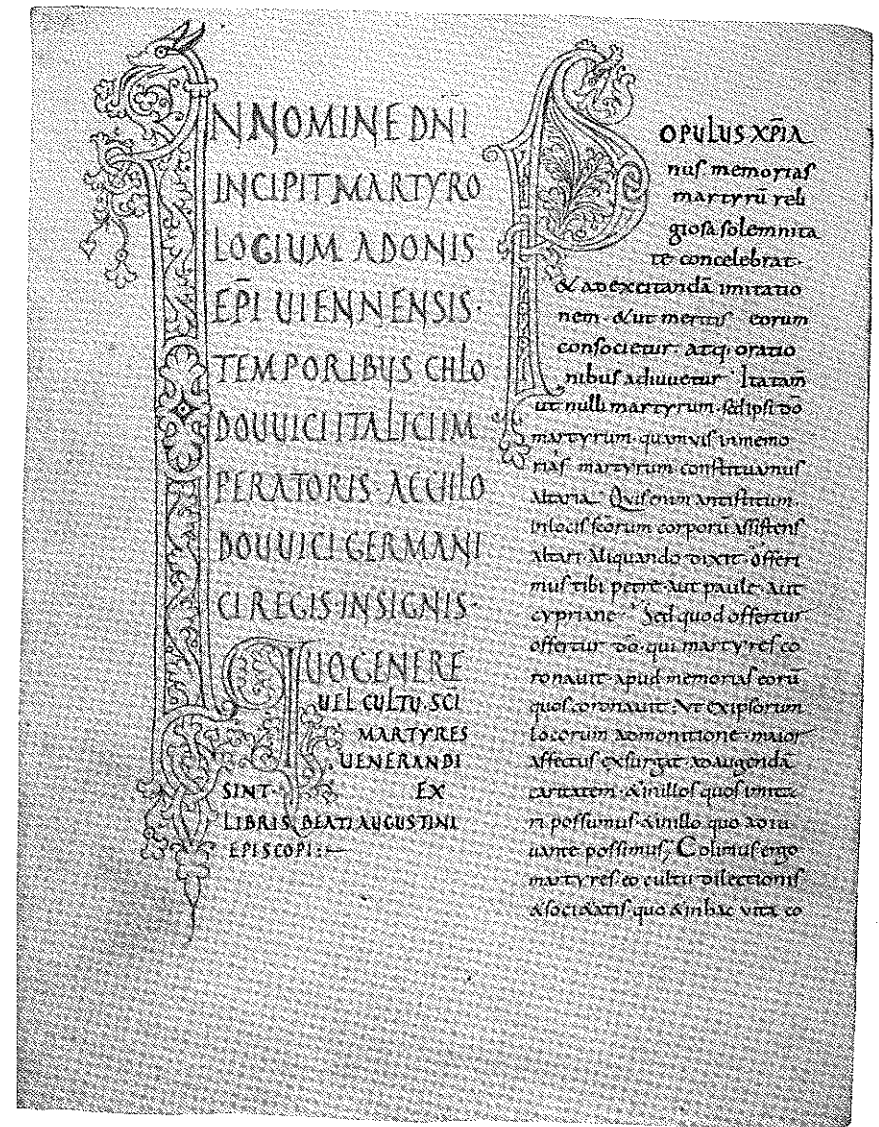 IN NOMINE DN̄I
INCIPIT MARTYRO
LOGIUM ADONIS
EP̄I UIENNENSIS·
TEMPORIBUS CHLO
DOUUICI ITALICI IM
PERATORIS· AC CHLO
DOUUICI GERMANI
CI REGIS· INSIGNIS·
QUO GENERE
UEL CULTU, SC̄I
MARTYRES
UENERANDI
SINT· EX
LIBRIS BEATI AUGUSTINI
EPISCOPI:—
POPULUS XP̄IA
nus memorias
martyrū reli
giosa solemnita
te concelebrat·
& ad excitandā imitatio
nem· & ut meritis eorum
consocietur· atq; oratio
nibus adiuuetur· Ita tam̄
ut nulli martyrum· sed ipsi dō
martyrum· quamvis in memo
rias martyrum constituamus
altaria· Quis enim antistitum·
in locis sc̄orum corporū assistens
altari aliquando dixit· offeri
mus tibi petre· aut paule· aut
cypriane· Sed quod offertur
offertur dō· qui martyres co
ronauit· apud memorias eorū
quos coronauit· Ut ex ipsorum
locorum admonitione· maior
affectus exsurgat· ad augendā
caritatem· & in illos quos imita
ri possumus· & in illo quo adiu
uante possimus; Colimus ergo
martyres eo cultu dilectionis
& societatis· quo & in hac vita co